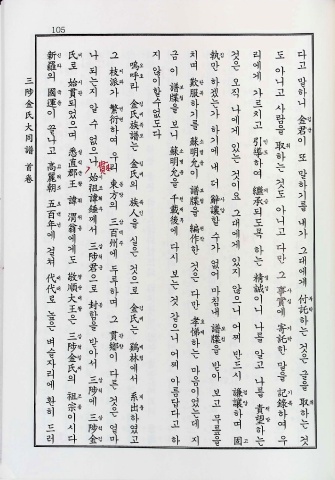 105
다고 말하니 金君이 또 말하기를 내가 그대에게 付託하는 것은 글을 取하는 것
도 아니고 사람을 取하는 것도 아니고 다만 그 事實에 寄託한 말을 記錄하여 우
리에게 가르치고 引導하여 繼承되도록 하는 精誠이니 나를 알고 나를 責望하는
것은 오직 나에게 있는 것이요 그대에게 있지 않으니 어찌 반드시 謙讓하며 固
執만 하겠는가 하기에 내 더 解讓할 수가 없어 마침내 譜牒을 받아 보고 무릎을
치며 歎服하기를 蘇明允이 譜牒을 編作한 것은 다만 孝悌하는 마음이었는데 지
금 이 譜牒을 보니 蘇明允을 千載後에 다시 보는 것 같으니 어찌 아름답다고 하
지 않이할 수 없도다
嗚呼라 金氏族譜는 金氏의 族人을 실은 것으로 金氏는 鷄林에서 系出하였고
그 枝派가 繁衍하여 우리 東方의 三百州에 두루하며 그 貫鄕이 다른 것은 얼마
나 되는지 알 수 없으나 始祖諱 에서 三陟君으로 封함을 받아서 三陟에 三陟金
氏로 始貫되었으며 悉直郡王 諱 渭翁에게도 敬順大王은 三陟金氏의 祖宗이시다
新羅의 國運이 끝나고 高麗朝 五百年에 걸쳐 代代로 높은 벼슬자리에 환히 드러
三陟金氏大同譜 首卷